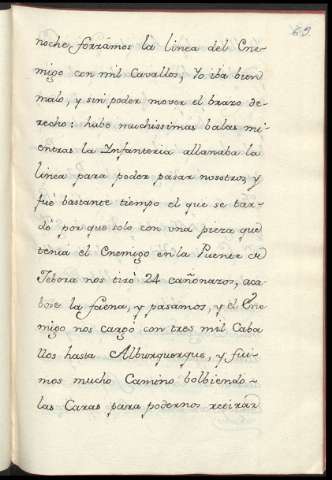 69.
noche forrámos la linea del Ene-
migo con mil Cavallos, Yo iba bien
malo, y sin poder mover el brazo de-
recho: hubo muchissimas balas mi-
entras la Infanteria allanaba la
linea para poder pasar nosotros, y
fué bastante tiempo el que se tar-
dó por que solo con una pieza que
tenia el Enemigo en la Puente de
Tebora nos tiró 24 cañonazos, aca-
bose la faena, y pasamos, y el Ene-
migo nos cargó con tres mil Caba-
llos hasta Alburquerque, y fui-
mos mucho Camino bolbiendo-
las Caras para podernos retirar